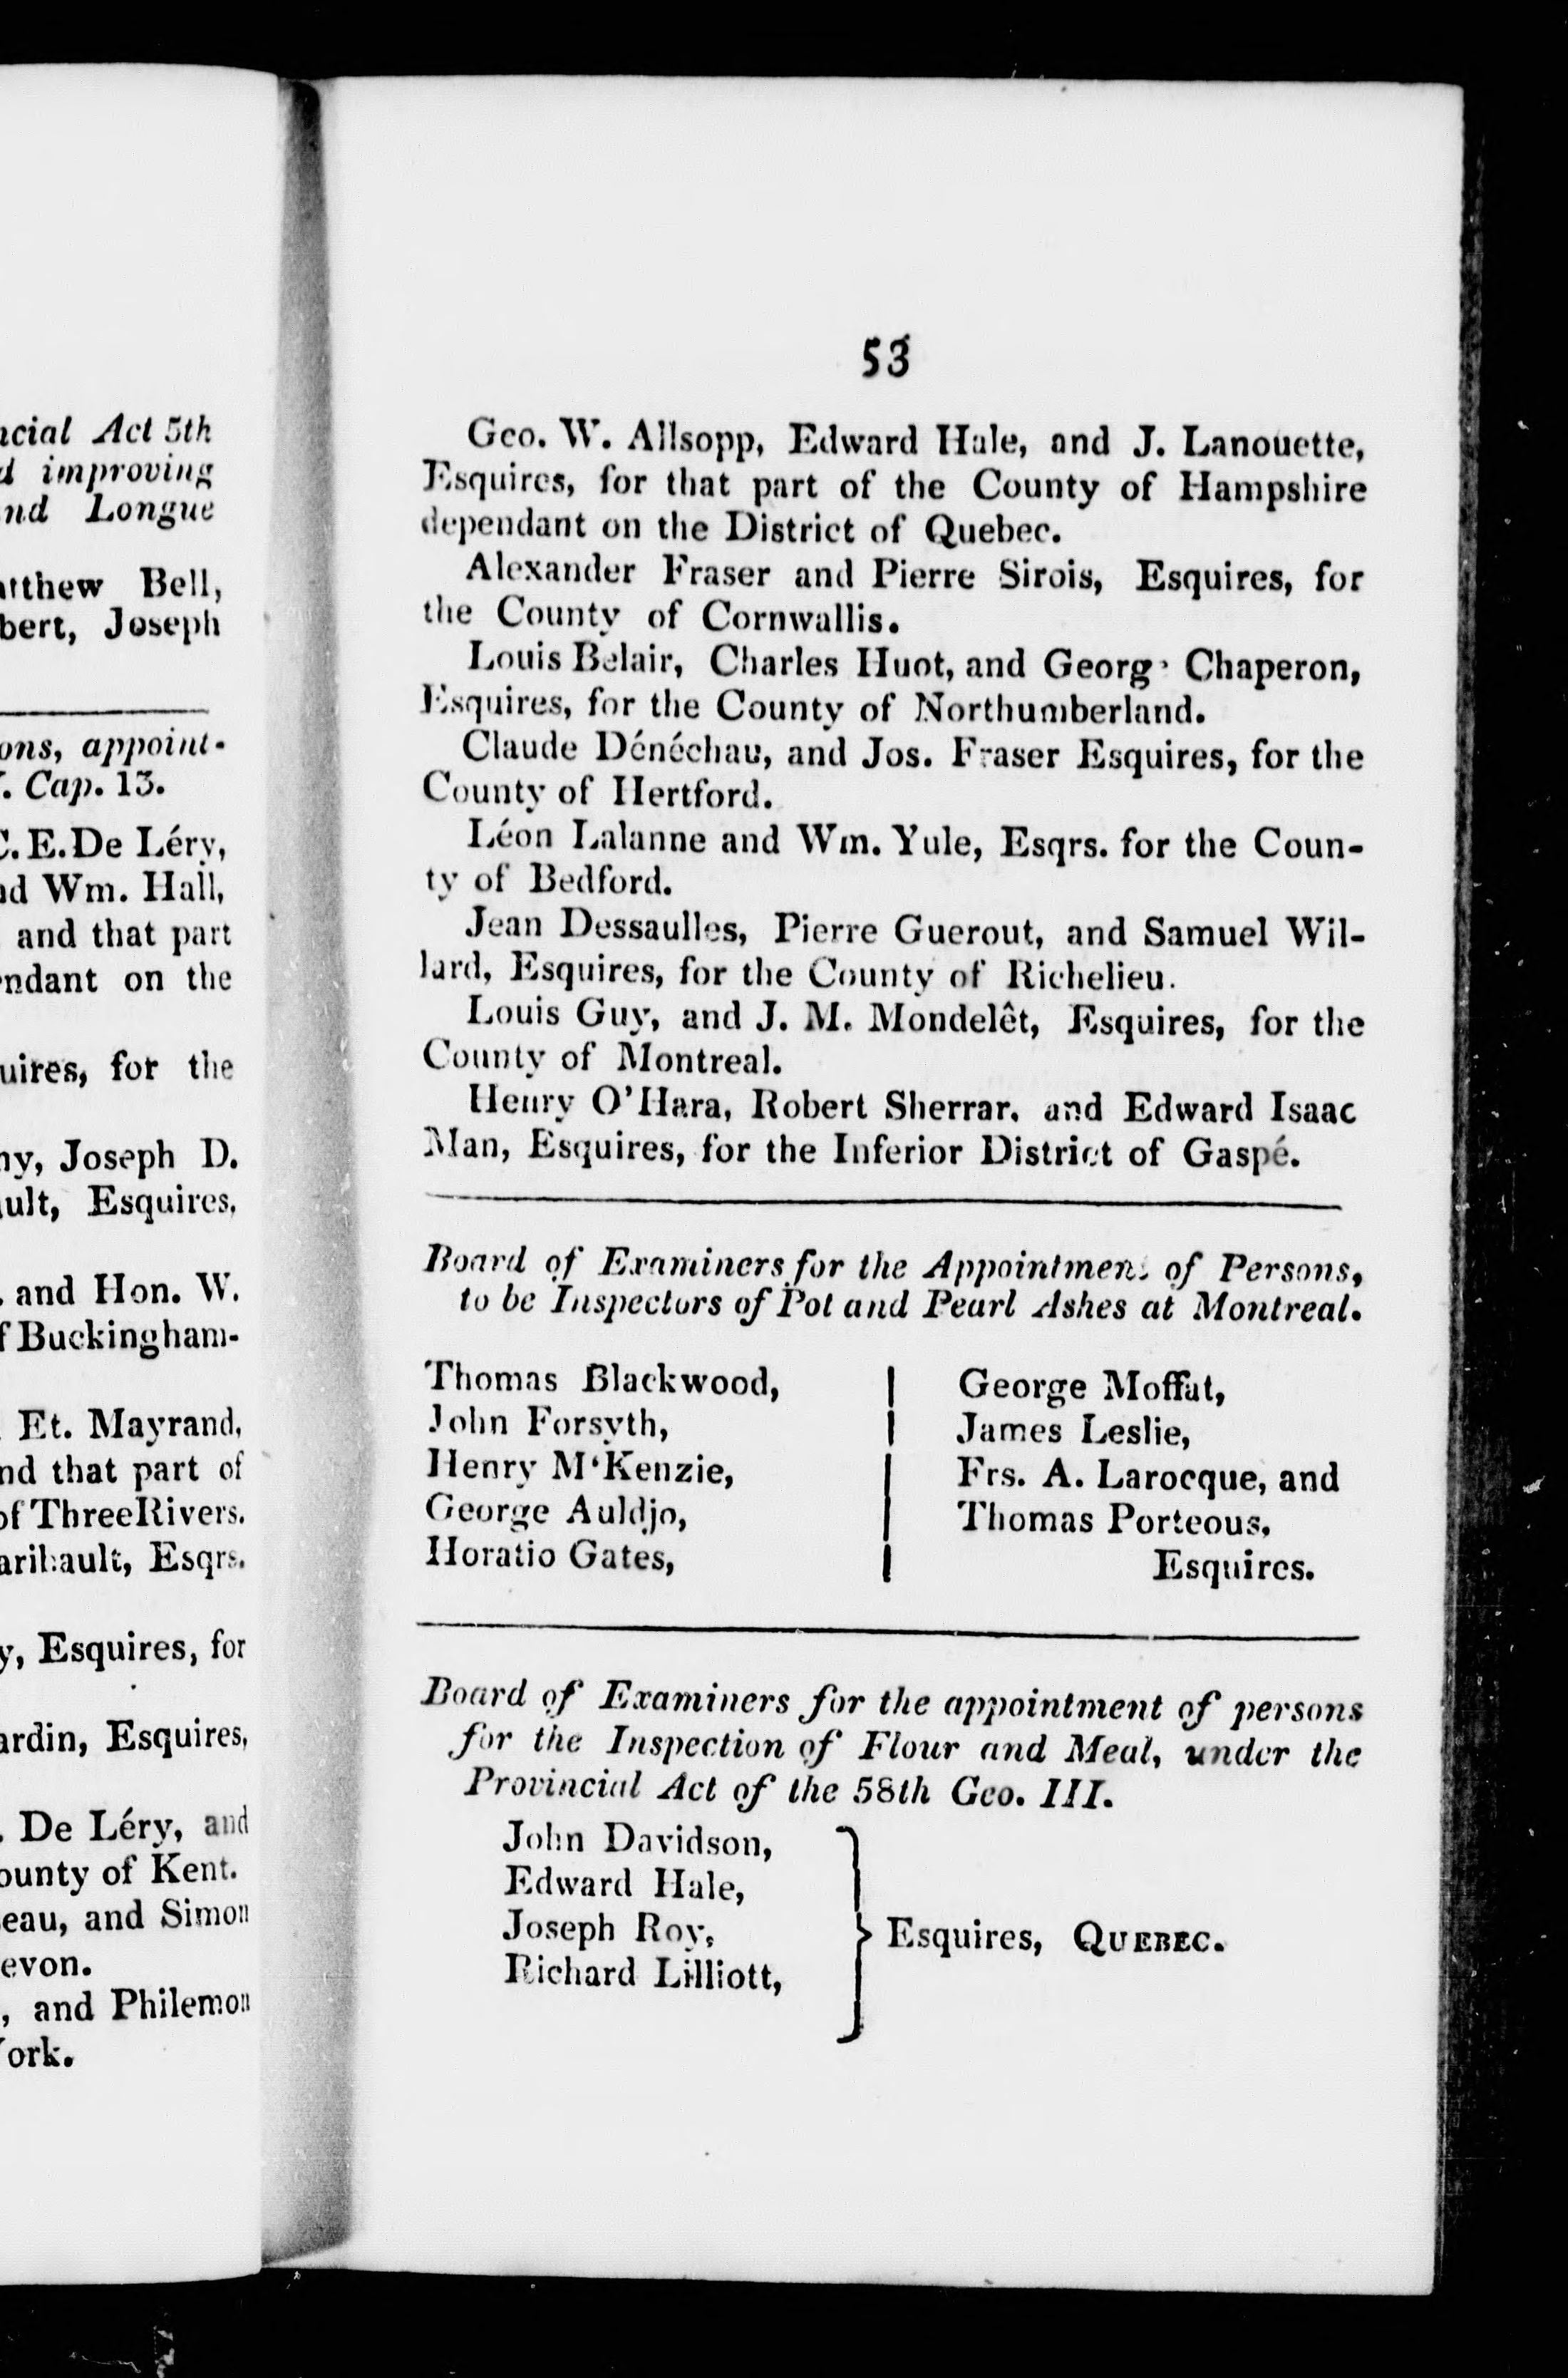 Act 5th
improving
Longue
Bell,
Joseph
appoint-
Cap. 13.
C.E.De Léry,
Wm. Hall,
and that part
on the
for the
Joseph D.
Esquires,
and Hon. W.
Buckingham-
Et. Mayrand,
that part of
of ThreeRivers.
Esqrs.
Esquires, for
Esquires,
De Léry, and
of Kent.
and Simon
and Philemon
53
Geo. W. Allsopp, Edward Hale, and J. Lanouette,
Esquires, for that part of the County of Hampshire
dependant on the District of Quebec.
Alexander Fraser and Pierre Sirois, Esquires, for
the County of Cornwallis.
Louis Belair, Charles Huot, and Georg Chaperon,
Esquires, for the County of Northumberland.
Claude Dénéchau, and Jos. Fraser Esquires, for the
County of Hertford.
Léon Lalanne and Wm. Yule, Esqrs. for the Coun-
ty of Bedford.
Jean Dessaulles, Pierre Guerout, and Samuel Wil-
lard, Esquires, for the County of Richelieu.
Louis Guy, and J. M. Mondelêt, Esquires, for the
County of Montreal.
Henry O'Hara, Robert Sherrar, and Edward Isaac
Man, Esquires, for the Inferior District of Gaspé.
Board of Examiners for the Appointment of Persons,
to be Inspectors of Pot and Pearl Ashes at Montreal.
Thomas Blackwood,
John Forsyth,
Henry M'Kenzie,
George Auldjo,
Horatio Gates,
George Moffat,
James Leslie,
Frs. A. Larocque, and
Thomas Porteous,
Esquires.
Board of Examiners for the appointment of persons
for the Inspection of Flour and Meal, under the
Provincial Act of the 58th Geo. III.
John Davidson,
Edward Hale,
Joseph Roy,
Richard Lilliott,
Esquires, QUEBEC.